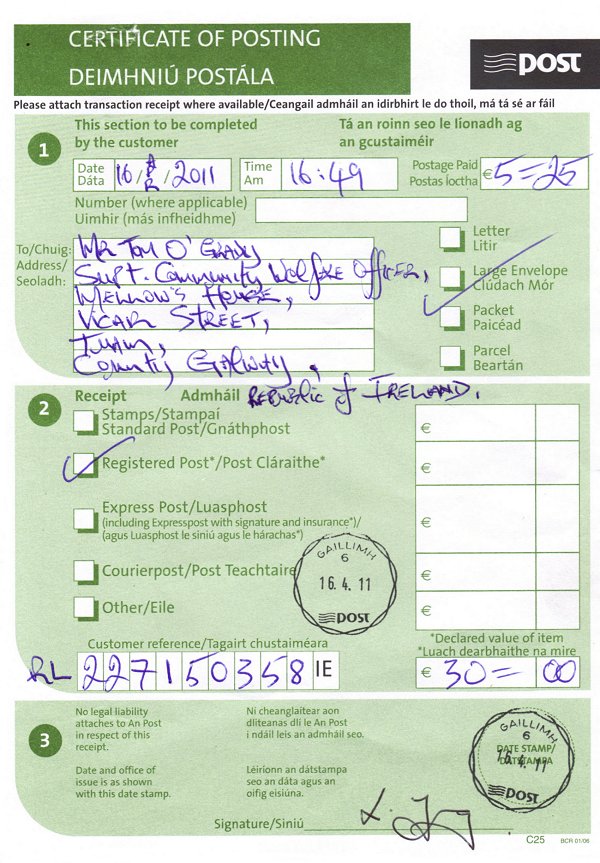 CERTIFICATE OF POSTING
DEIMHNIÚ POSTÁLA
post
Please attach transaction receipt where available/Ceangail admháil an idirbhirt le do thoil, má tá sé ar fáil
1
This section to be completed
by the customer
Tá an roinn seo le líonadh ag
an gcustaiméir
Date
Dáta
16/APR/2011
Time
Am
16:49
Postage Paid
Postas íoctha
€5=25
Number (where applicable)
Uimhir (más infheidhme)
To/Chuig:
Address/
Seoladh:
MR TOM O'GRADY
SUPT. COMMUNITY WELFARE OFFICER,
MELLOW'S HOUSE,
VICAR STREET,
TUAM,
COUNTY GALWAY,
REPUBLIC of IRELAND.
Letter
Litir
Large Envelope
Clúdach Mór
Packet
Paicéad
Parcel
Beartán
2
Receipt Admháil
Stamps/Stampaí
Standard Post/Gnáthphost
€
Registered Post*/Post Cláraithe*
€
Express Post/Luasphost
(including Expresspost with signature and insurance*)/
(agus Luasphost le siniú agus le hárachas*)
€
Courierpost/Post Teachtaire
€
Other/Eile
€
GAILLIMH
6
16.4.11
post
Customer reference/Tagairt chustaiméara
RL 227150358 IE
*Declared value of item
*Luach dearbhaithe na míre
€ 30=00
3
No legal liability
attaches to An Post
in respect of this
receipt.
Date and office of
issue is as shown
with this date stamp.
Ni cheanglaítear aon
dliteanas dlí le An Post
i ndáil leis an admháil seo.
Léiríonn an dátstampa
seo an dáta agus an
oifig eisiúna.
GAILLIMH
6
DATE STAMP/
DÁTSTAMPA
16.4.11
post
Signature/Siniú
C25 BCR 01/06